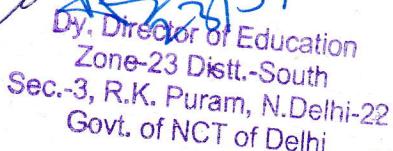 Dy. Director of Education
Zone-23 Distt.-South
Sec.-3, R.K. Puram, N.Delhi-22
Govt. of NCT of Delhi